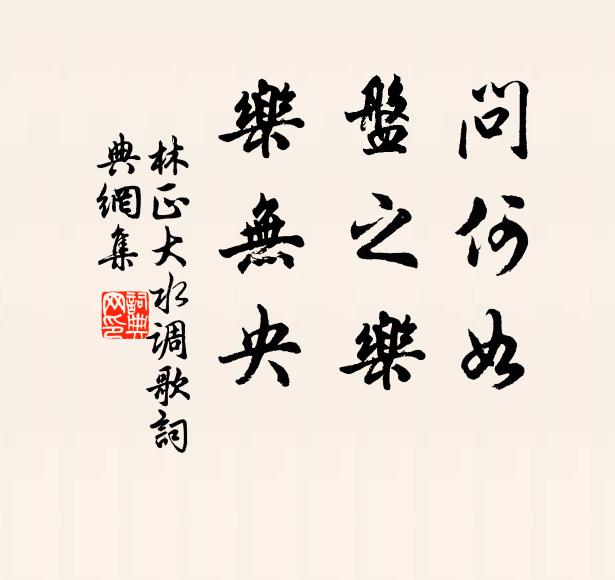 問何如
盤之樂
樂無央
林正大水调歌詞
典網集
詞典网印